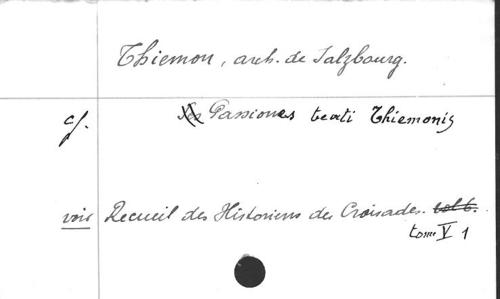 Thiemon, arch. de Salzbourg.
cf. Passiones beati Thiemonis
voir Recueil des Historiens des Croisades.
tome V 1